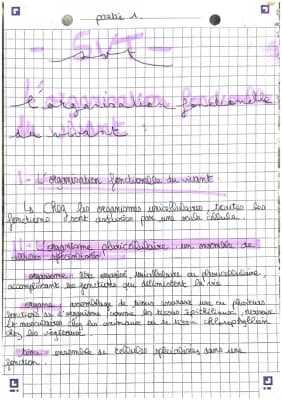 partie 1.
- SVT -
svt
L'organisation fonctionelle
du vivant :
I - L'organisation fonctionelle du vivant.
↳ Chez les organismes unicellulaires toutes les
fonctions sont assurées par une seule cellule.
II - L'organisme pluricellulaire, un ensemble de
cellules spécialisées.
organisme : Etre organisé, unicellulaire ou pluricellulaire,
accomplissant les fonctions qui délimitent la vie
organe : assemblage de tissus assurant une ou plusieurs
fonctions de l'organisme comme les tissus épithéliaux, nerveux
et musculaires chez les animaux ou le tissu chlorophyllien
chez les végétaux.
tissu : ensemble de cellules spécialisées dans une
fonction.